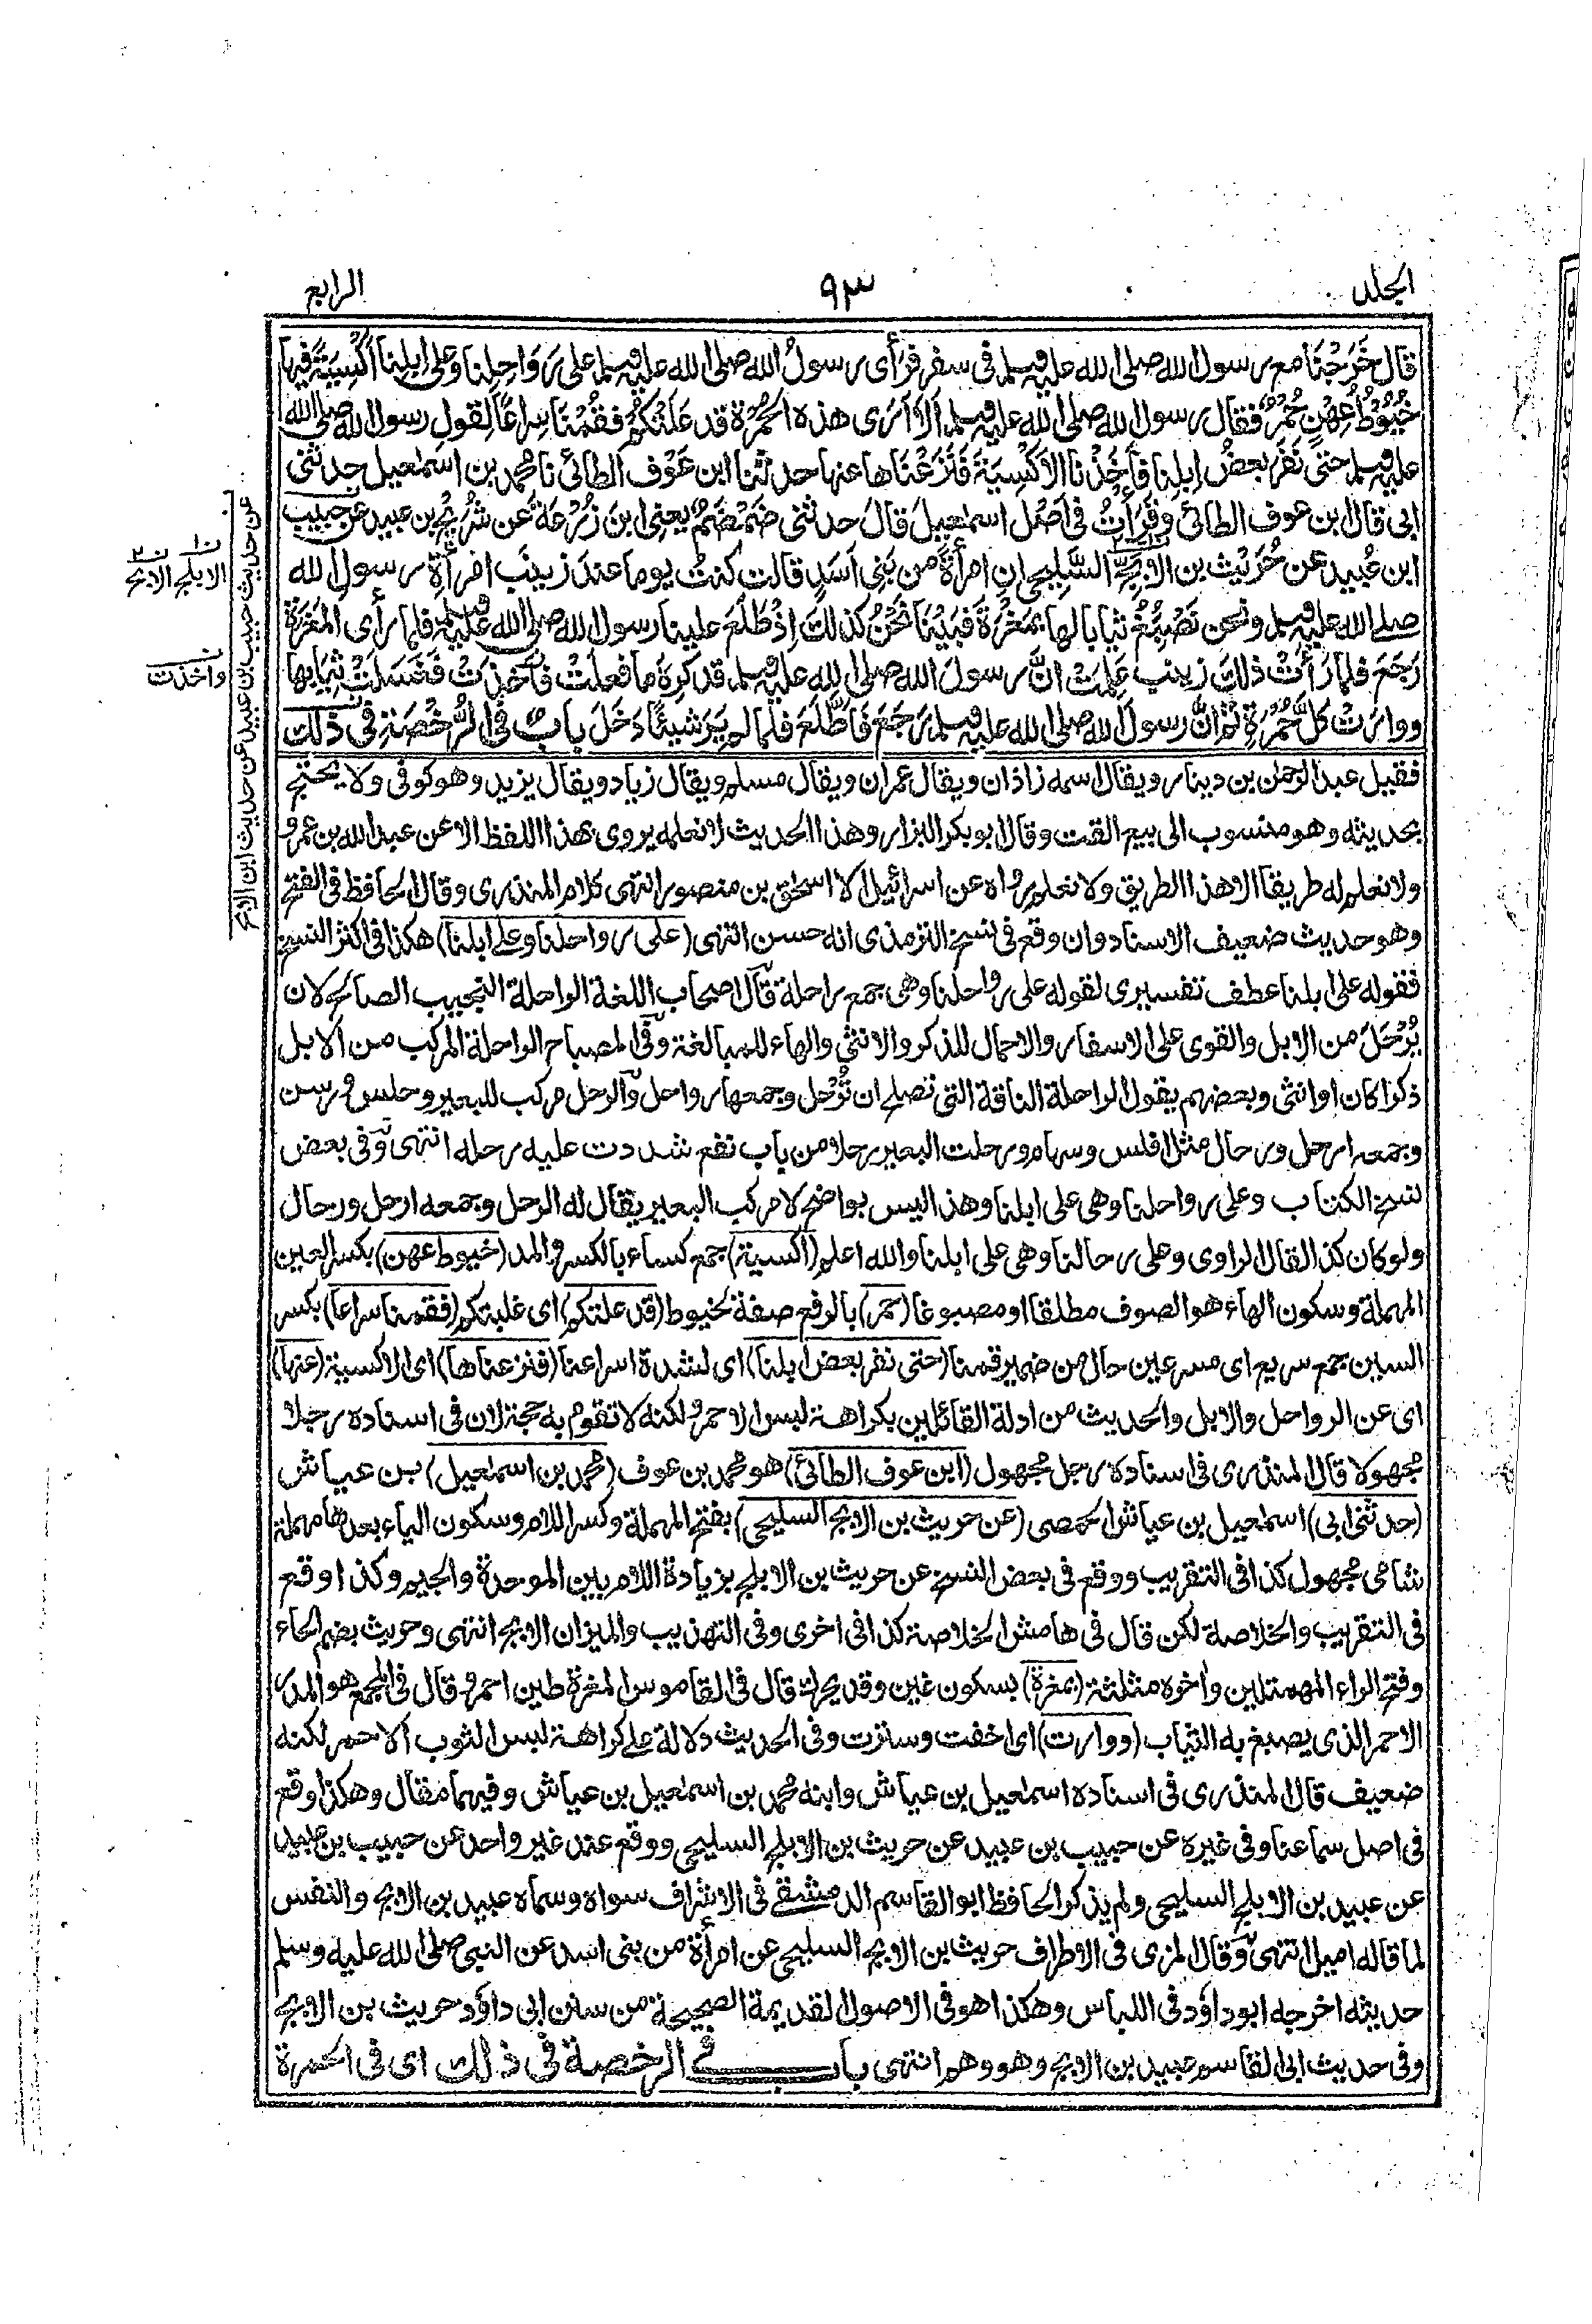 الجلد ٩٣ الرابع
قال خَرَجْنَا مع رسول الله صلى الله عليه وسلم في سفر فرَأى رسولُ الله صلى الله عليه وسلم على رَوَاحِلِنا وَعلى إبِلِنا أكْسِيَةً فيها
خُيُوْطُ عِهْنٍ حُمْرٌ فقال رسول الله صلى الله عليه وسلم ألَا أرَى هذه الحُمْرَةَ قد عَلَتْكُم فقُمْنَا سِراعًا لِقول رسول الله صلى الله
عليه وسلم حتى نَفَرَ بعضُ إبِلِنا فأخَذْنا الأكْسِيَةَ فَنَزَعْنَاها عنها حدثنا ابن عَوْف الطائى نا محمد بن اسمعيل حدثنى
ابى قال ابن عوف الطائى وقَرَأتُ في أصْلِ اسمعيلَ قال حدثنى ضَمْضَمٌ يعنى ابنَ زُرْعَةَ عن شُرَيْح بن عبيد عن حبيب
ابن عُبيد عن حُرَيْث بن الابَجّ السَّلِيحى ان امرأةً من بَنِى أسَدٍ قالت كنتُ يوما عند زينَب امرأةِ رسولِ الله
صلى الله عليه وسلم ونحن نَصْبُغُ ثيابا لها بمَغْرَةٍ فَبَيْنَا نَحْنُ كذلك إذْ طَلَعَ علينا رسول الله صلى الله عليه وسلم فلما رأى المَغَرَةَ
رَجَعَ فلما رَأتْ ذلك زينب عَلِمَتْ انَّ رسولَ الله صلى الله عليه وسلم قد كَرِهَ ما فعلَتْ فأخَذَتْ فَغَسَلَتْ ثيابها
ووارَتْ كلَّ حُمْرَةٍ ثم انَّ رسولَ الله صلى الله عليه وسلم رَجَعَ فَاطَّلَعَ فلما لم يَرَ شيئًا دَخَلَ بابٌ في الرُّخْصَةِ في ذلك
فقيل عبد الرحمن بن دينار ويقال اسمه زاذان ويقال عمران ويقال مسلم ويقال زياد ويقال يزيد وهو كوفى ولا يحتج
بحديثه وهو منسوب الى بيع القت وقال ابو بكر البزار وهذا الحديث لا نعلمه يروى بهذا اللفظ الا عن عبد الله بن عمرو
ولا نعلم له طريقا الا هذا الطريق ولا نعلم رواه عن اسرائيل الا اسحق بن منصور انتهى كلام المنذرى وقال الحافظ في الفتح
وهو حديث ضعيف الاسناد وان وقع في نسخ الترمذى انه حسن انتهى (على رواحلنا وعلى ابلنا) هكذا في اكثر النسخ
فقوله على ابلنا عطف تفسيرى لقوله على رواحلنا وهى جمع راحلة قال اصحاب اللغة الراحلة النجيب الصالح لان
يُرْحَلَ من الابل والقوى على الاسفار والاحمال للذكر والانثى والهاء للمبالغة وفي المصباح الراحلة المركب من الابل
ذكرا كان او انثى وبعضهم يقول الراحلة الناقة التى تصلح ان تُرْحل وجمعها رواحل والرحل مركب للبعير وحلس ورسن
وجمعه ارحل ورحال مثل افلس وسهام ورحلت البعير رحلا من باب نفع شددت عليه رحله انتهى وفي بعض
نسخ الكتاب وعلى رواحلنا وهى على ابلنا وهذا ليس بواضح لا مركب البعير يقال له الرحل وجمعه ارحل ورحال
ولو كان كذا لقال الراوى وعلى رحالنا وهى على ابلنا والله اعلم (اكسية) جمع كساء بالكسر والمد (خيوط عهن) بكسر العين
المهملة وسكون الهاء هو الصوف مطلقا او مصبوغا (حمر) بالرفع صفة لخيوط (قد علتكم) اى غلبتكم (فقمنا سراعا) بكسر
السين جمع سريع اى مسرعين حال من ضمير قمنا (حتى نفر بعض ابلنا) اى لشدة اسراعنا (فنزعناها) اى الاكسية (عنها)
اى عن الرواحل والابل والحديث من ادلة القائلين بكراهة لبس الاحمر ولكنه لا تقوم به حجة لان في اسناده رجلا
مجهولا قال المنذرى في اسناده رجل مجهول (ابن عوف الطائى) هو محمد بن عوف (محمد بن اسمعيل) بن عياش
(حدثنى ابى) اسمعيل بن عياش الحمصى (عن حريث بن الابج السليحى) بفتح المهملة وكسر اللام وسكون الياء بعدها مهملة
شامى مجهول كذا في التقريب ووقع في بعض النسخ عن حريث بن الابلج بزيادة اللام بين الموحدة والجيم وكذا وقع
في التقريب والخلاصة لكن قال في هامش الخلاصة كذا في اخرى وفي التهذيب والميزان الابج انتهى وحريث بضم الحاء
وفتح الراء المهملتين واخره مثلثة (بمغرة) بسكون غين وقد يحرك قال في القاموس المغرة طين احمر وقال في المجمع هو المدر
الاحمر الذى يصبغ به الثياب (ووارت) اى اخفت وسترت وفي الحديث دلالة على كراهة لبس الثوب الاحمر لكنه
ضعيف قال المنذرى في اسناده اسمعيل بن عياش وابنه محمد بن اسمعيل بن عياش وفيهما مقال وهكذا وقع
في اصل سماعنا وفي غيره عن حبيب بن عبيد عن حريث بن الابلج السليحى ووقع عند غير واحد عن حبيب بن عبيد
عن عبيد بن الابلج السليحى ولم يذكر الحافظ ابو القاسم الدمشقى في الاشراف سواه وسماه عبيد بن الابج والنفس
لما قاله اميل انتهى وقال المزى في الاطراف حريث بن الابج السليحى عن امرأة من بنى اسد عن النبى صلى الله عليه وسلم
حديثه اخرجه ابو داود في اللباس وهكذا هو في الاصول القديمة الصحيحة من سنن ابى داود حريث بن الابج
وفي حديث ابى القاسم عبيد بن الابج وهو وهم انتهى باب في الرخصة في ذلك اى في الحمرة
ن١ ن٢
الابلج الابح
ن
واخذت
عن حديث حبيب بن عبيد عن حديث ابن الابح